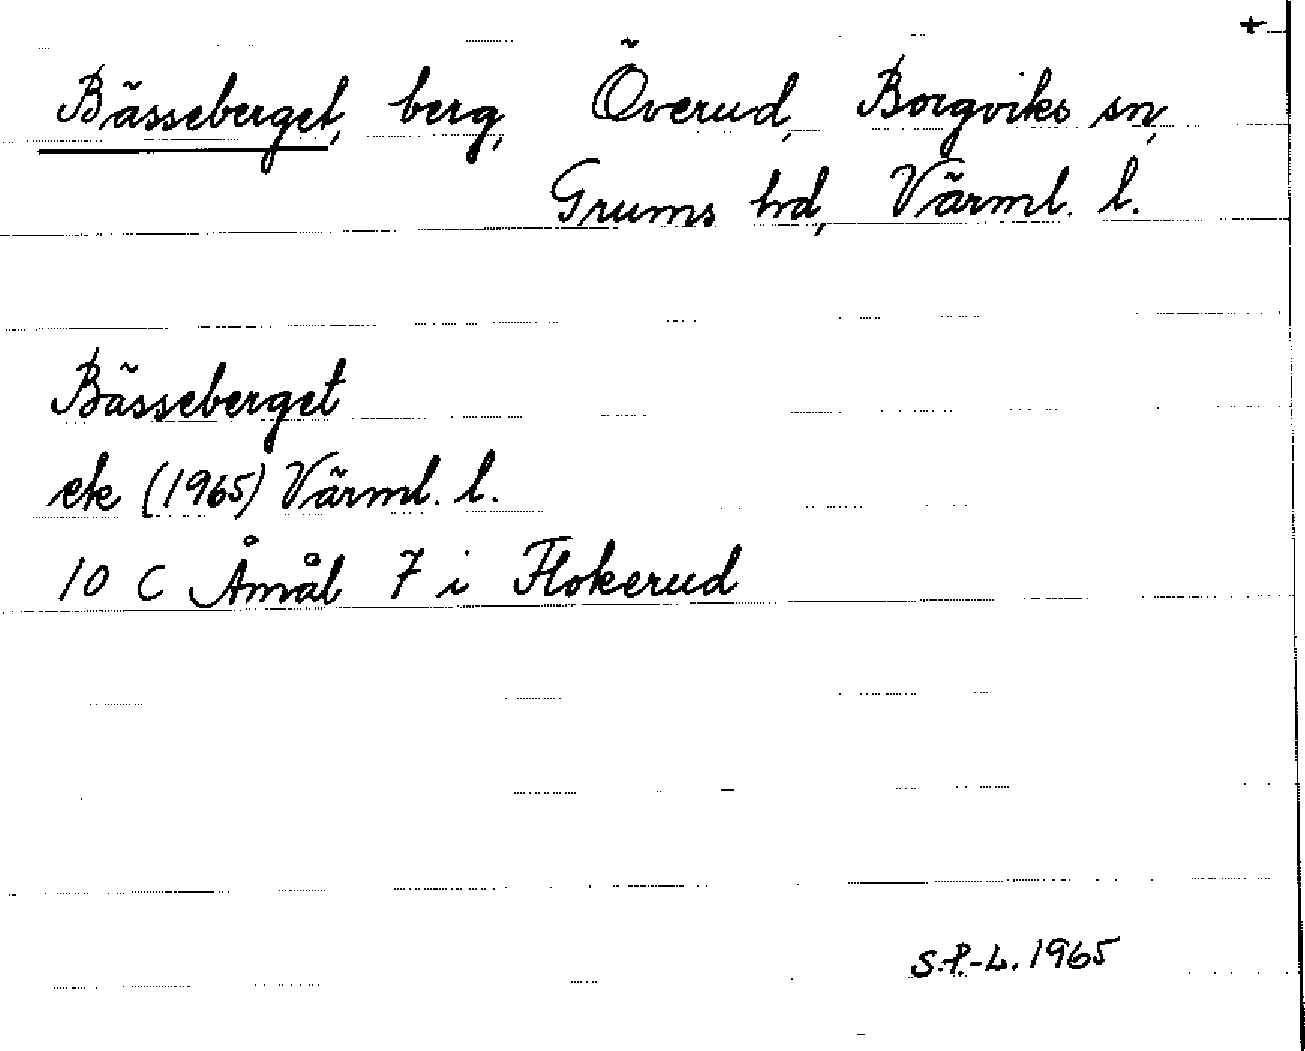 +
Bässeberget, berg, Överud, Borgviks sn,
Grums hd, Värml. l.
Bässeberget
ek (1965) Värml. l.
10 C Åmål 7 i Flokerud
S.P.-L. 1965